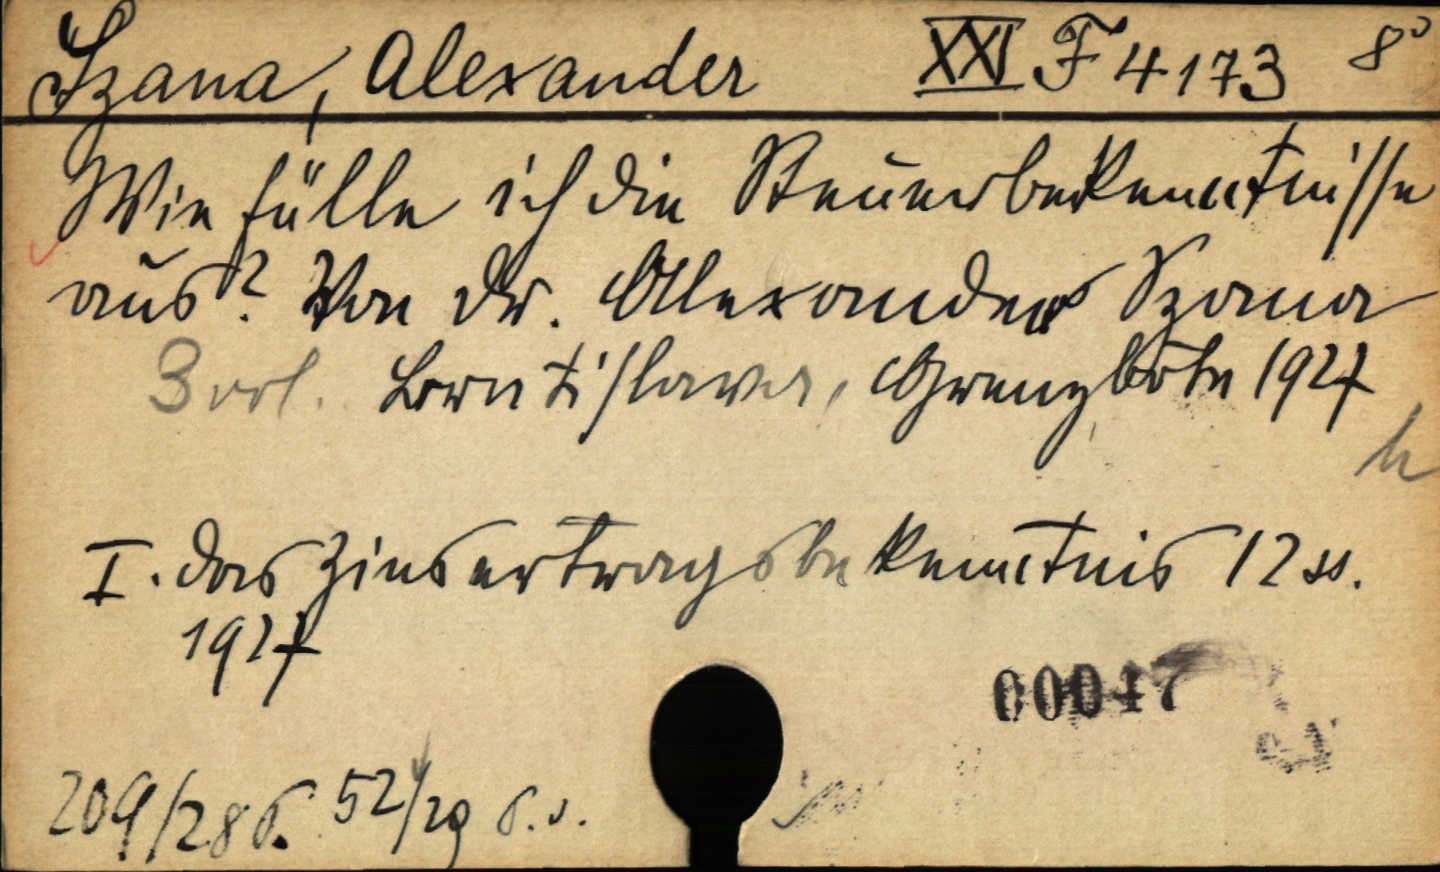 Szana, Alexander XXI F 4173 8°
Wie fülle ich die Steuerbekenntnisse
aus? Von Dr. Alexander Szana
Bratislava, Grenzbote 1927
I. Das Zinsertragsbekenntnis 12 ss.
1927
00047
209/28 6. 52/29 6.s.